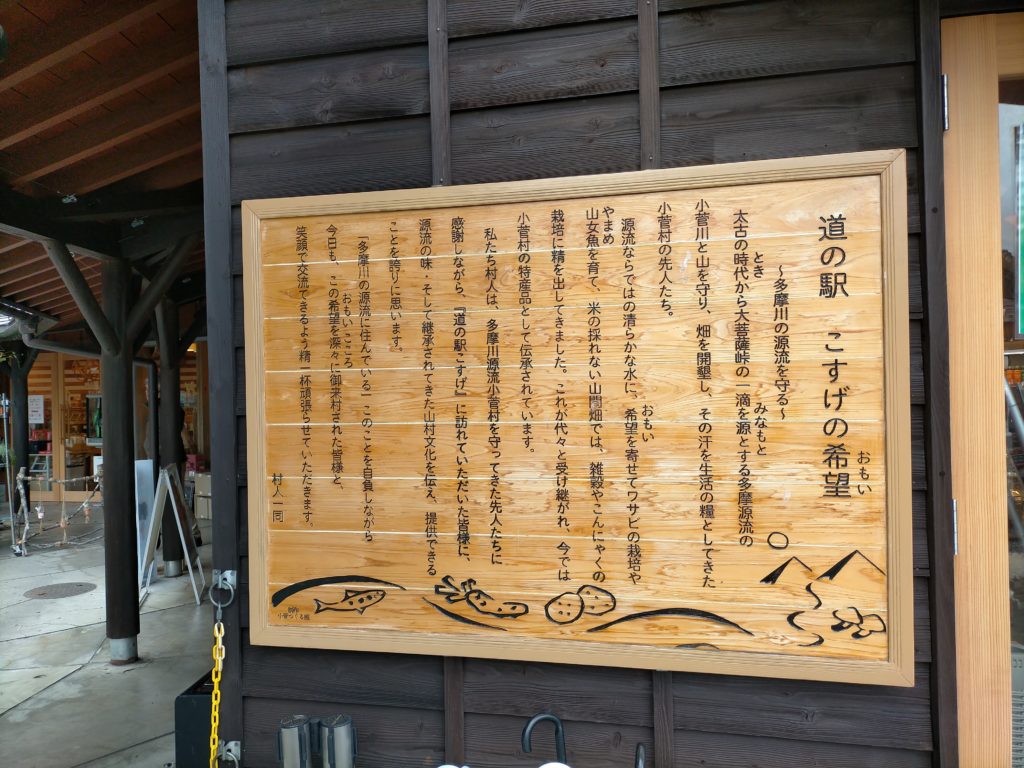 道の駅　こすげの希望
おもい
～多摩川の源流を守る～
とき
みなもと
太古の時代から大菩薩峠の一滴を源とする多摩源流の
小菅川と山を守り、畑を開墾し、その汗を生活の糧としてきた
小菅村の先人たち。
おもい
源流ならではの清らかな水に、希望を寄せてワサビの栽培や
やまめ
山女魚を育て、米の採れない山間畑では、雑穀やこんにゃくの
栽培に精を出してきました。これが代々と受け継がれ、今では
小菅村の特産品として伝承されています。
私たち村人は、多摩川源流小菅村を守ってきた先人たちに
感謝しながら、『道の駅こすげ』に訪れていただいた皆様に、
源流の味・そして継承されてきた山村文化を伝え、提供できる
ことを誇りに思います。
「多摩川の源流に住んでいる」このことを自負しながら
おもい
こころ
今日も、この希望を深々に御来村された皆様と、
笑顔で交流できるよう精一杯頑張らせていただきます。
村人一同